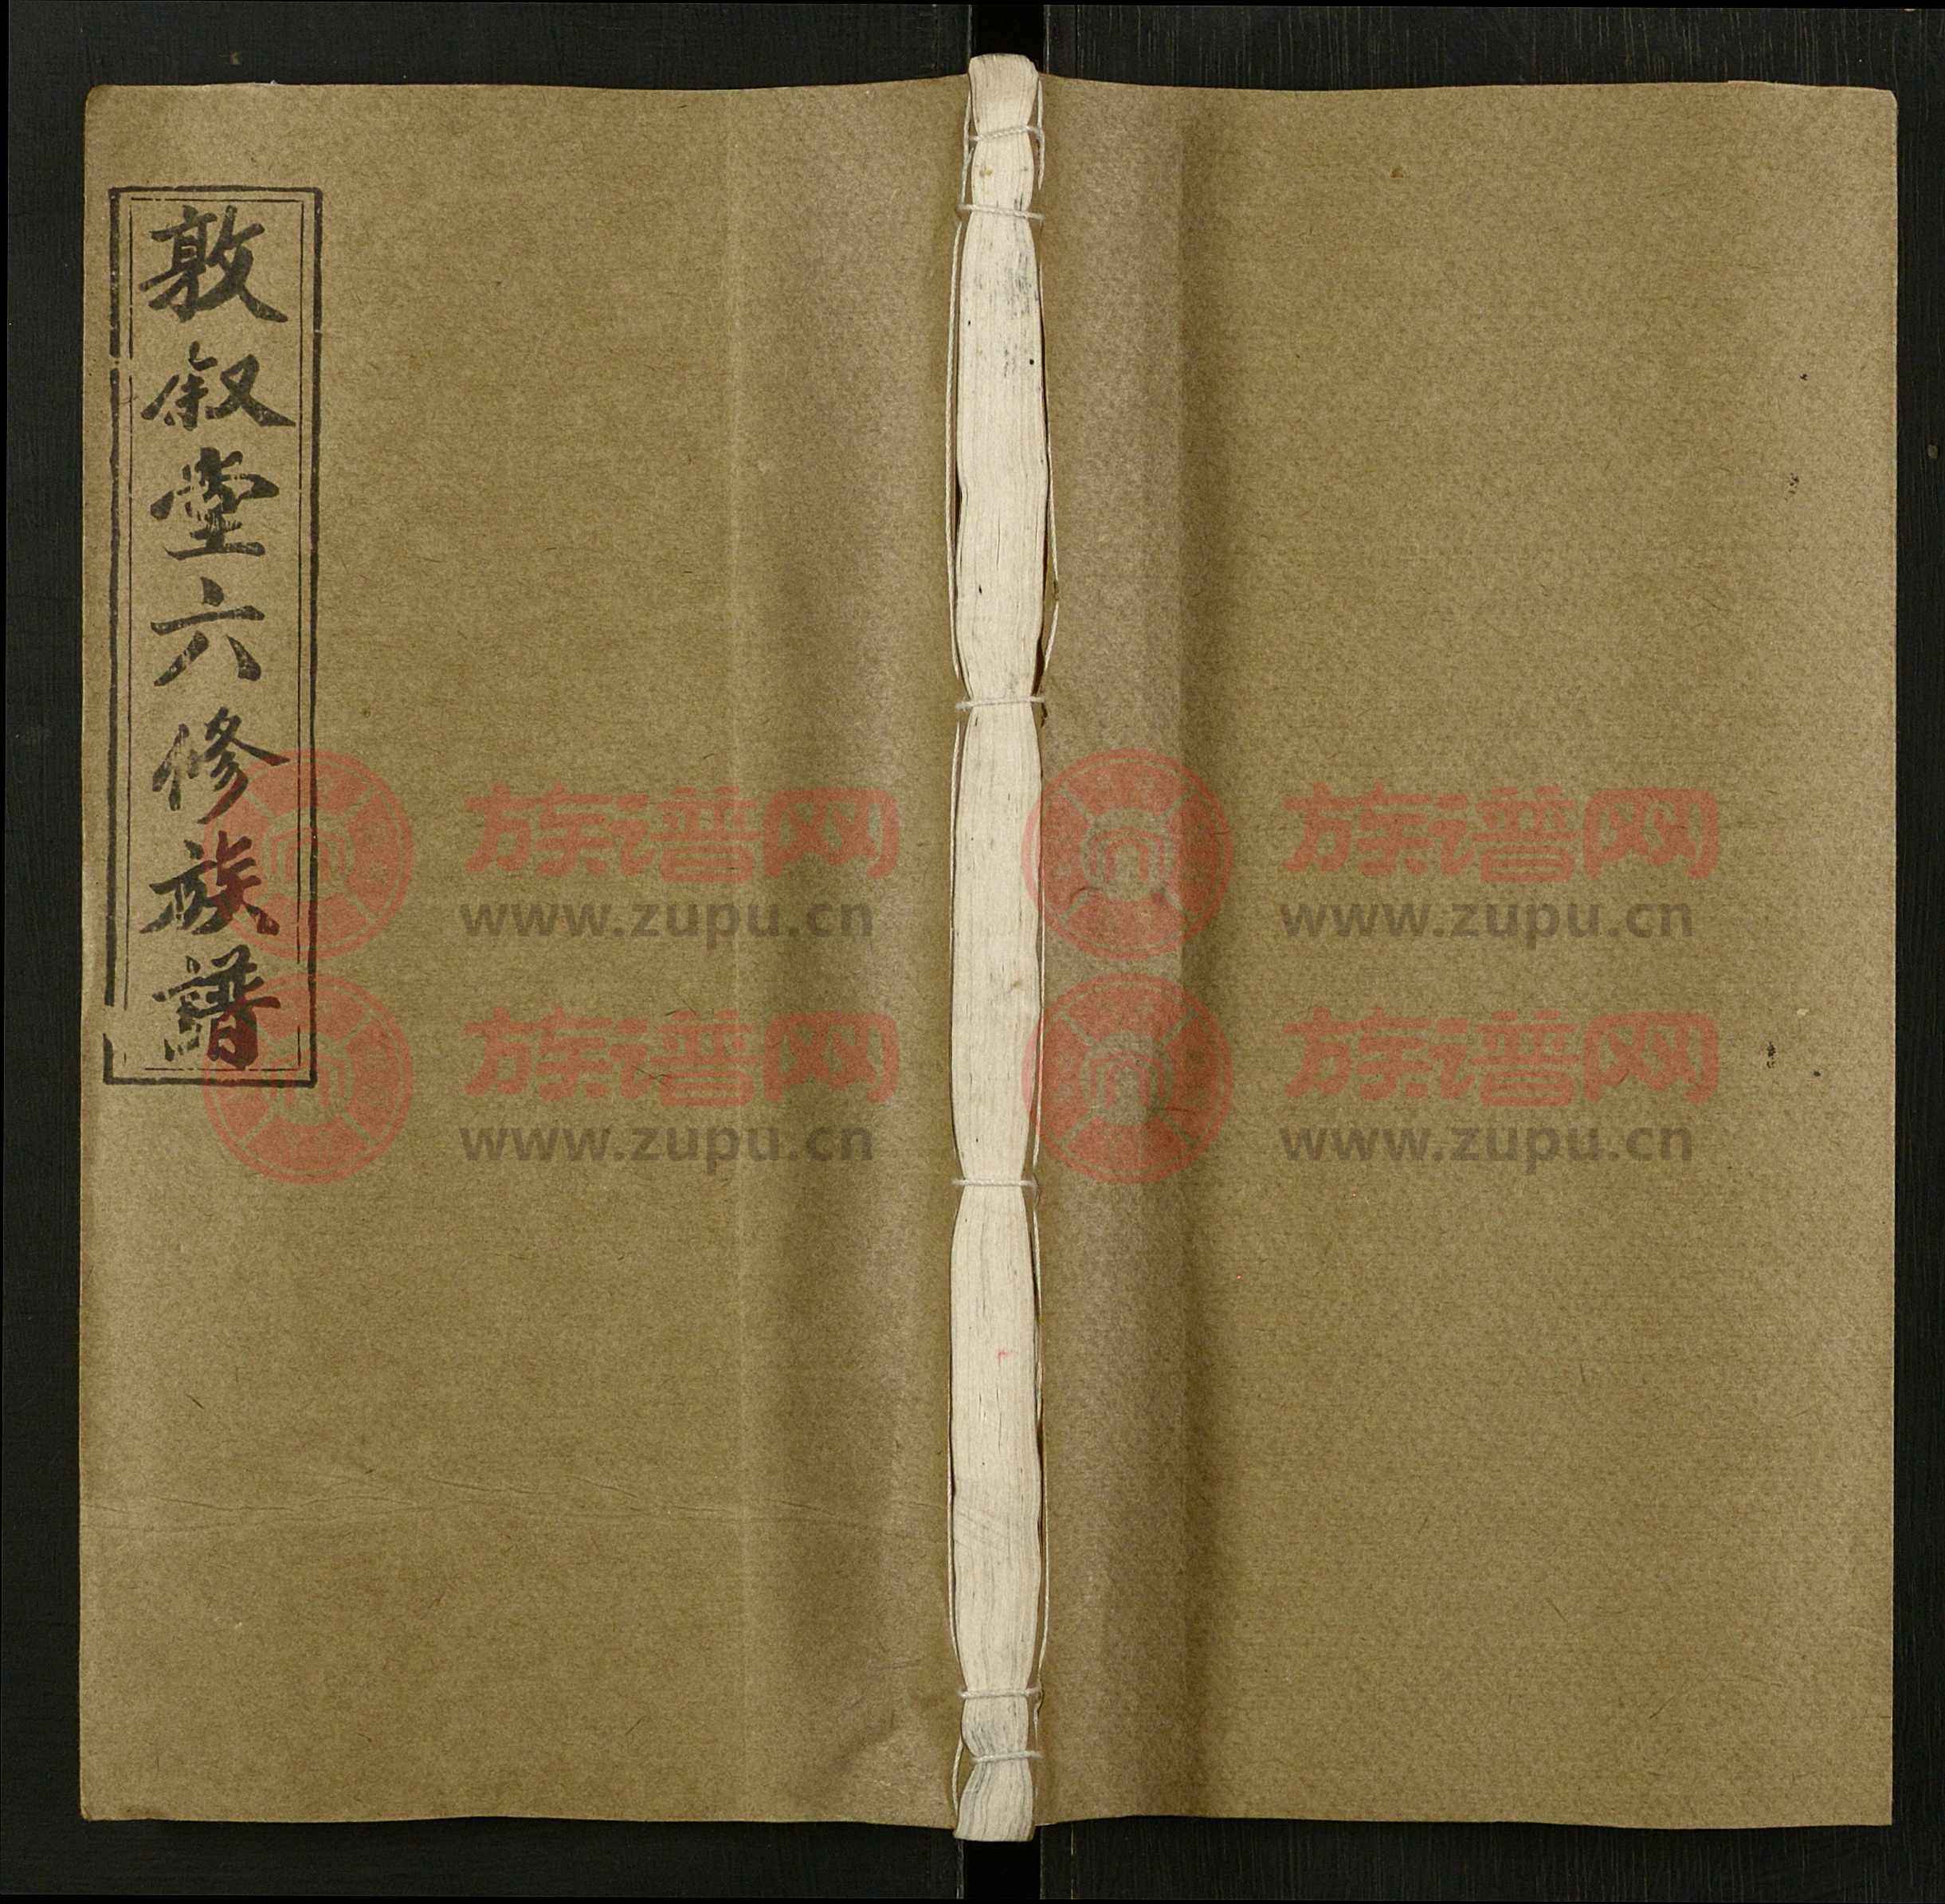 敦叙堂六修族譜
族谱网
www.zupu.cn
族谱网
www.zupu.cn
族谱网
www.zupu.cn
族谱网
www.zupu.cn